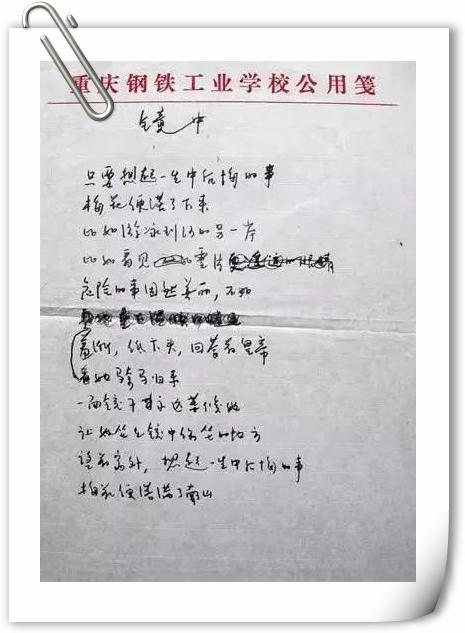 重庆钢铁工业学校公用笺
镜中
只要想起一生中后悔的事
梅花便落了下来
比如游泳到河的另一岸
比如看见雪片
危险的事固然美丽，不如
羞惭，低下头，回答着皇帝
看她骑马归来
一面镜子永远等候她
让她坐在镜中常坐的地方
望着窗外，想起一生中后悔的事
梅花便落满了南山